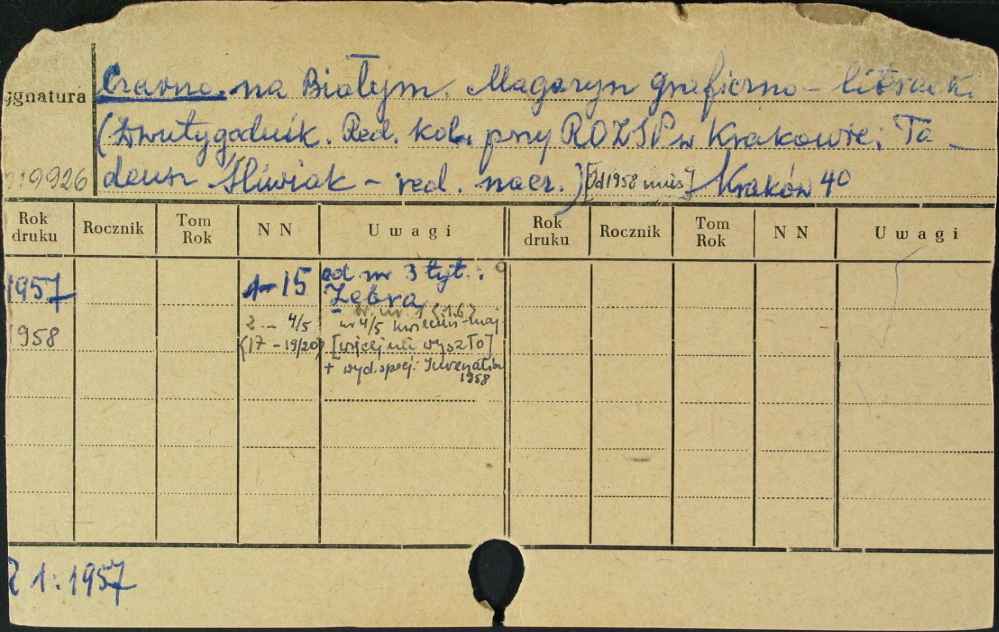 Czarne na Białym. Magazyn graficzno-literack.
ygnatura
(Dwutygodnik. Red. kol. przy ROZSP w Krakowie; Ta-
19926
deusz Śliwiak - red. nacz.) [od 1958 mies] Kraków 4°
Rok druku Rocznik Tom Rok NN Uwagi Rok druku Rocznik Tom Rok NN Uwagi
1957 1-15 od nr 3 tyt.:
Zebra
nr 1 (16)
1958 2 - 4/5 nr 4/5 kwiecień-maj
(17 - 19/20) [więcej nie wyszło]
+ wyd. specj. Juvenalia
1958
R 1: 1957